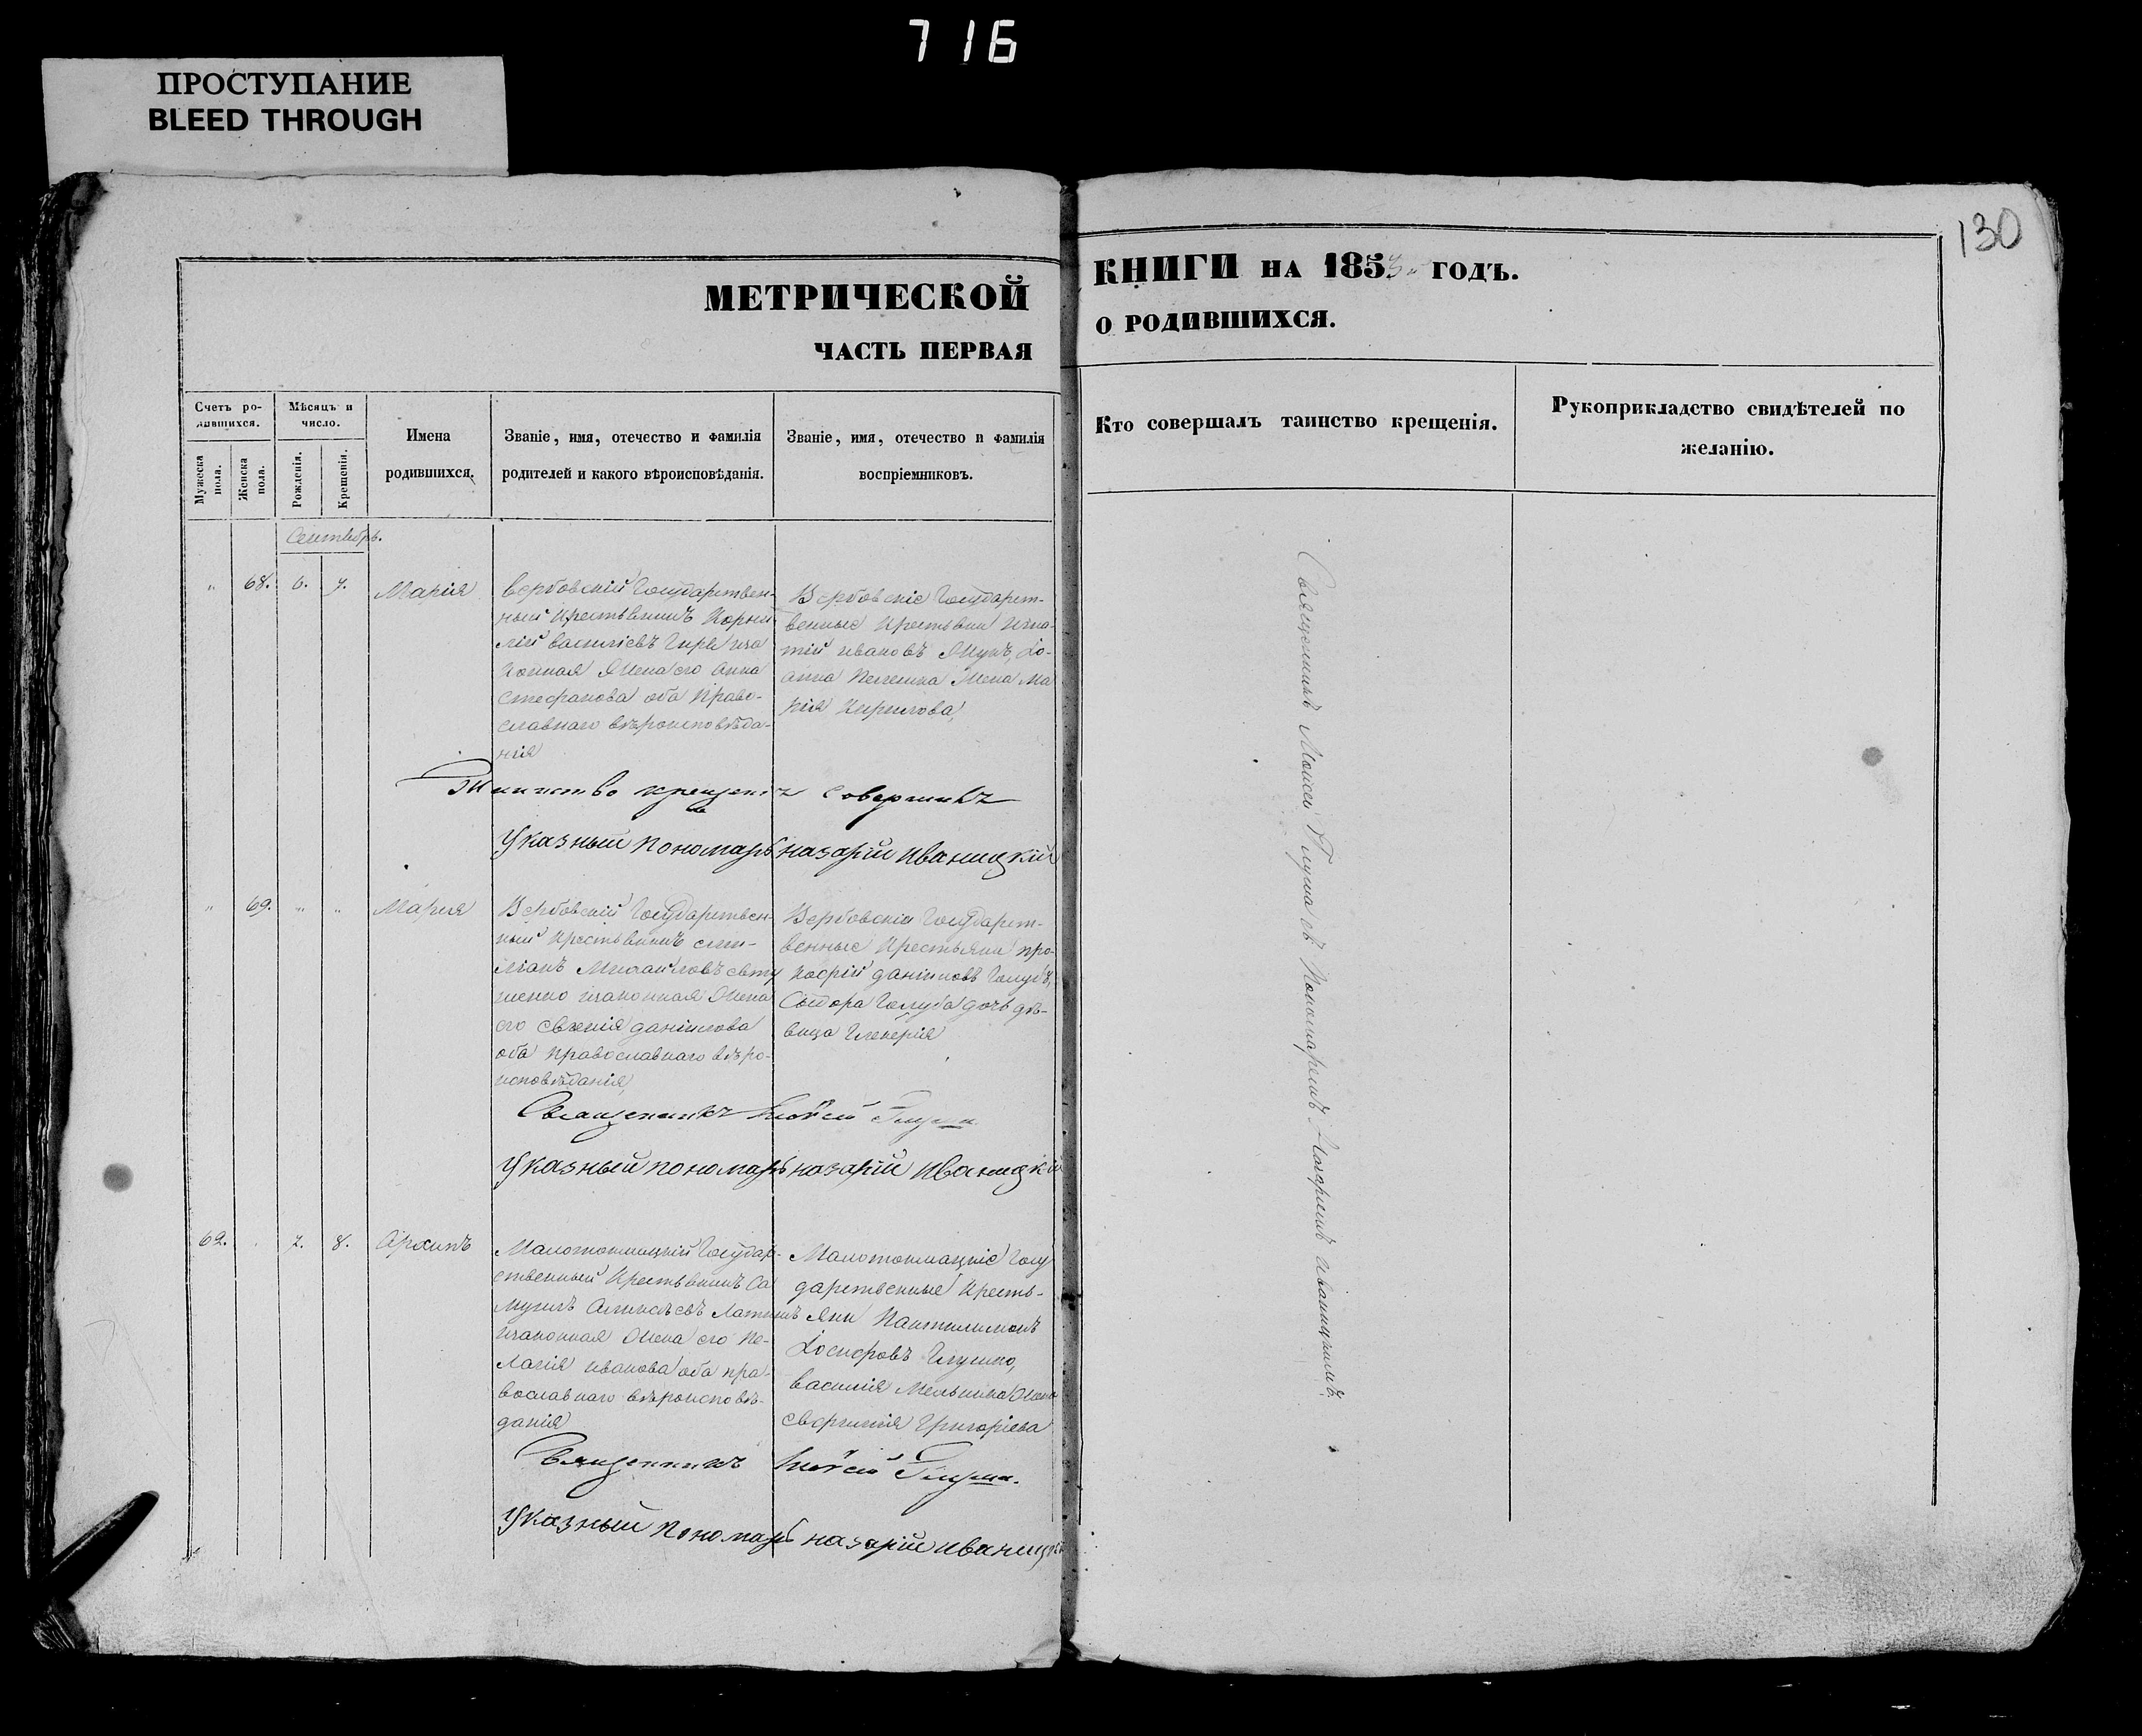 716
ПРОСТУПАНИЕ
BLEED THROUGH
130
МЕТРИЧЕСКОЙ
ЧАСТЬ ПЕРВАЯ
КНИГИ НА 1853 ГОДЪ.
О РОДИВШИХСЯ.
Счетъ родившихся.
Мужеска пола.
Женска пола.
Мѣсяцъ и число.
Рожденія.
Крещенія.
Имена родившихся.
Званіе, имя, отечество и фамилія
родителей и какого вѣроисповѣданія.
Званіе, имя, отечество и фамилія
воспріемниковъ.
Кто совершалъ таинство крещенія.
Рукоприкладство свидѣтелей по
желанію.
Сентябрь.
" 68. 6. 7. Марія
Вербовскій Государствен-
ный Крестьянинъ Корни-
лій Васильевъ зако
нная Жена его Анна
Стефанова оба Право-
славнаго вѣроисповѣда-
нія
Вербовскіе Государст-
венные Крестьяне Игна-
тій Ивановъ Іо-
анна Жена Ма
рія Кирилова,
Таинство крещенія совершилъ
Указный пономарь назарій иваницкій
" 69. " " Марія
Вербовскій Государствен-
ный Крестьянинъ
Михаиловъ
законная Жена
его Евгенія даніилова
оба православнаго вѣро-
исповѣданія
Вербовскіи Государст-
венные Крестьяни про-
кофій даніиловъ Голубъ,
Сидора Голуба дочь дѣ-
вица Гликерія
Священникъ Моисей Глума
Указный пономарь назарій иваницкій
62. . 7. 8. Архипъ
Малотокмацкій Государ-
ственный Крестьянинъ Са
муилъ Алексѣевъ
законная Жена его Пе-
лагія Иванова оба пра-
вославнаго вѣроисповѣ-
данія
Малотокмацкіе Госу
дарственные Кресть-
яни Пантилимонъ
Іосифовъ Глушко,
василія Мельника Жена
Григоріева
Священникъ Моисей Глума.
Указный пономарь назарій иваницкій
Священникъ Моисей Глума съ Пономаремъ Назаріемъ Иваницкимъ.